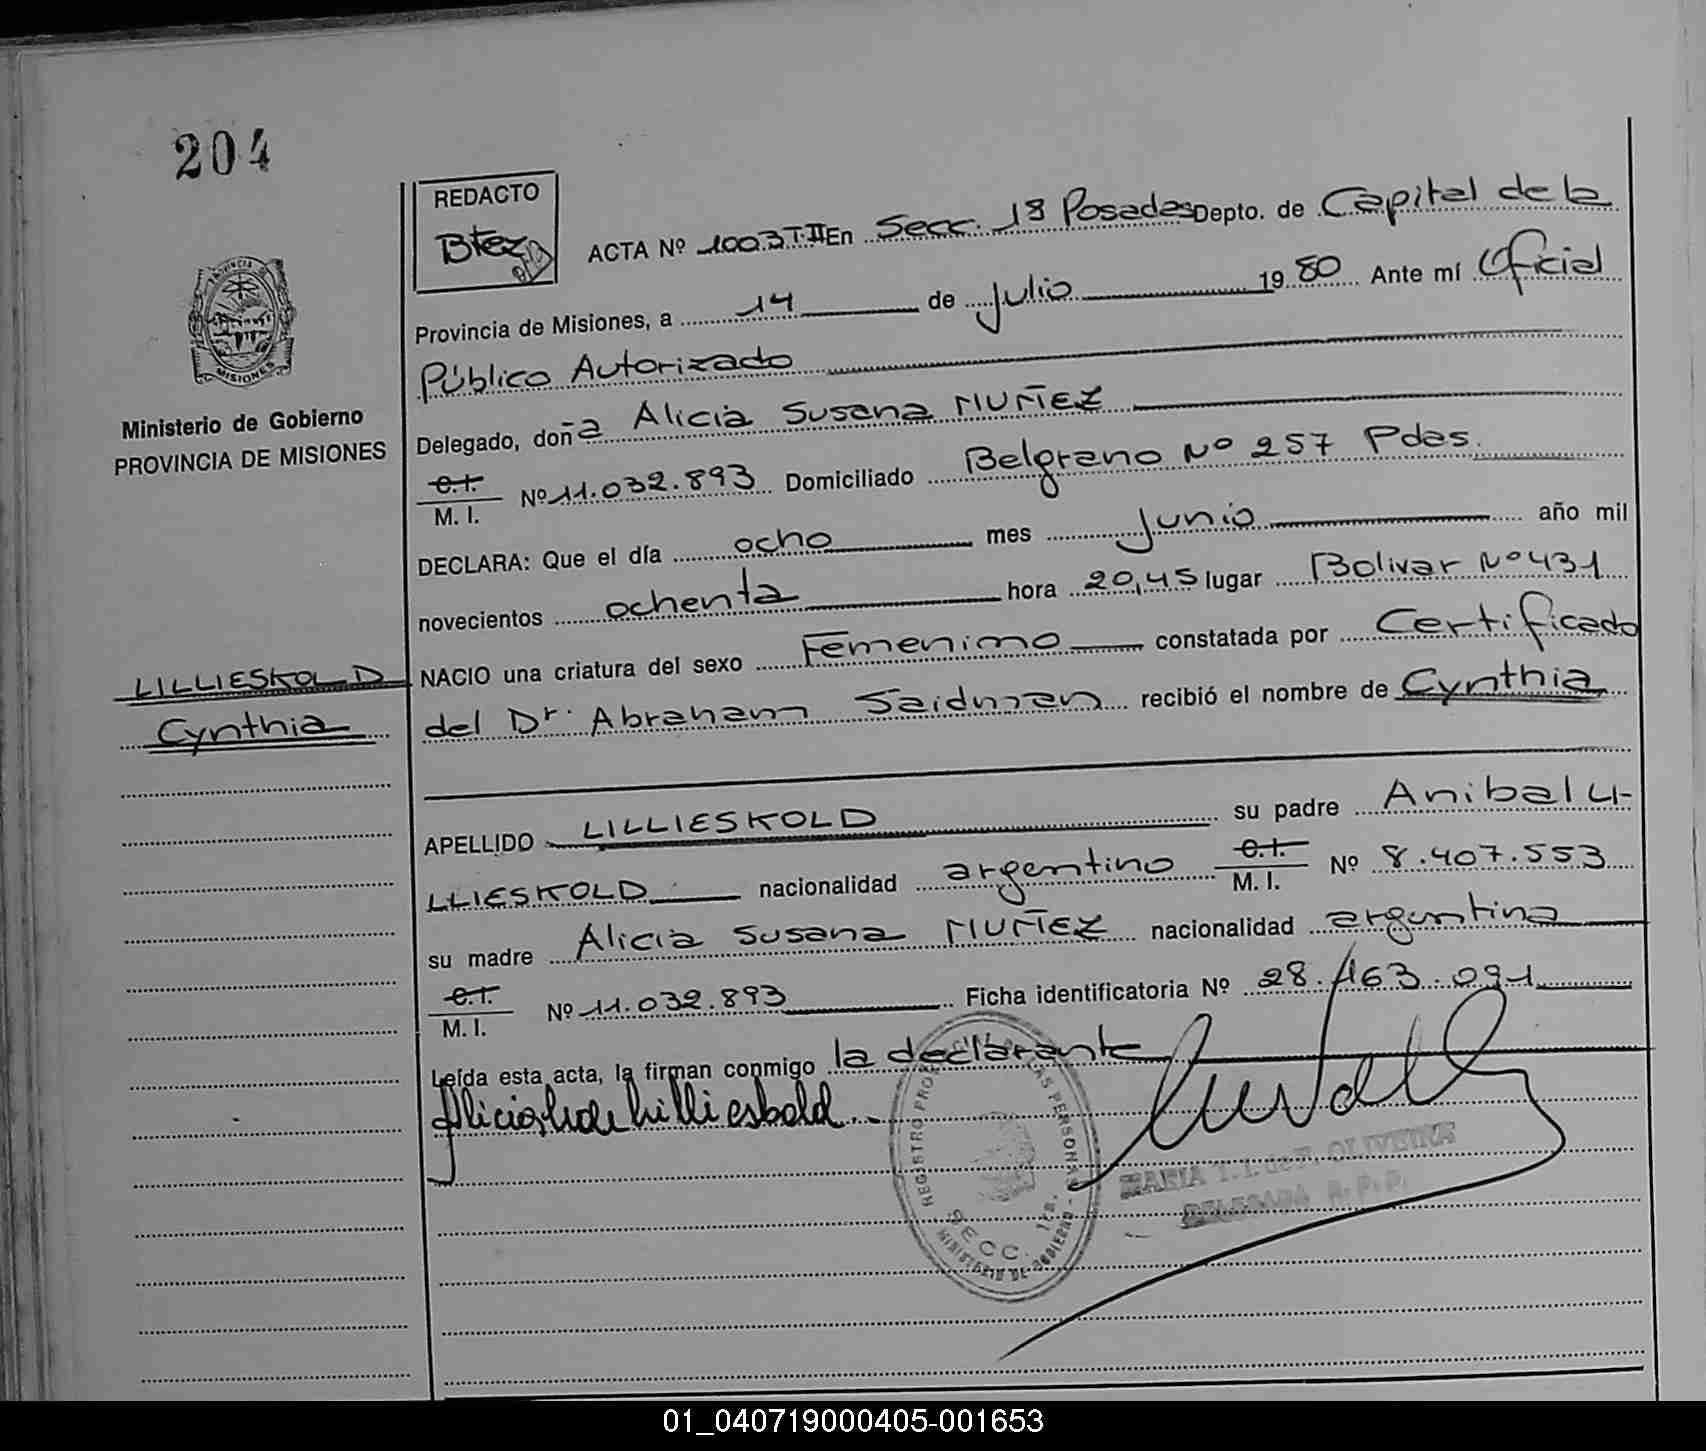 204
REDACTO
Btez
ACTA Nº 1003 T·II En Secc. 1ª Posadas Depto. de Capital de la
Provincia de Misiones, a 14 de Julio 1980 Ante mí Oficial
Público Autorizado
Delegado, doña Alicia Susana MUÑEZ
C.I. M. I. Nº 11.032.893 Domiciliado Belgrano Nº 257 Pdas.
DECLARA: Que el día ocho mes Junio año mil
novecientos ochenta hora 20,45 lugar Bolivar Nº 431
NACIO una criatura del sexo Femenino constatada por Certificado
del Dr. Abraham Saidman recibió el nombre de Cynthia
APELLIDO LILLIESKOLD su padre Anibal LI-
LLIESKOLD nacionalidad argentino C.I. M. I. Nº 8.407.553
su madre Alicia Susana MUÑEZ nacionalidad argentina
C.I. M. I. Nº 11.032.893 Ficha identificatoria Nº 28.163.091
Leída esta acta, la firman conmigo la declarante
PROVINCIA
MISIONES
Ministerio de Gobierno
PROVINCIA DE MISIONES
LILLIESKOLD
Cynthia
REGISTRO PERSONAS
SECC. 1ra.
MINISTERIO DE GOBIERNO
MARIA T. I. de F. OLIVEIRA
DELEGADA R. P. P.
01_040719000405-001653